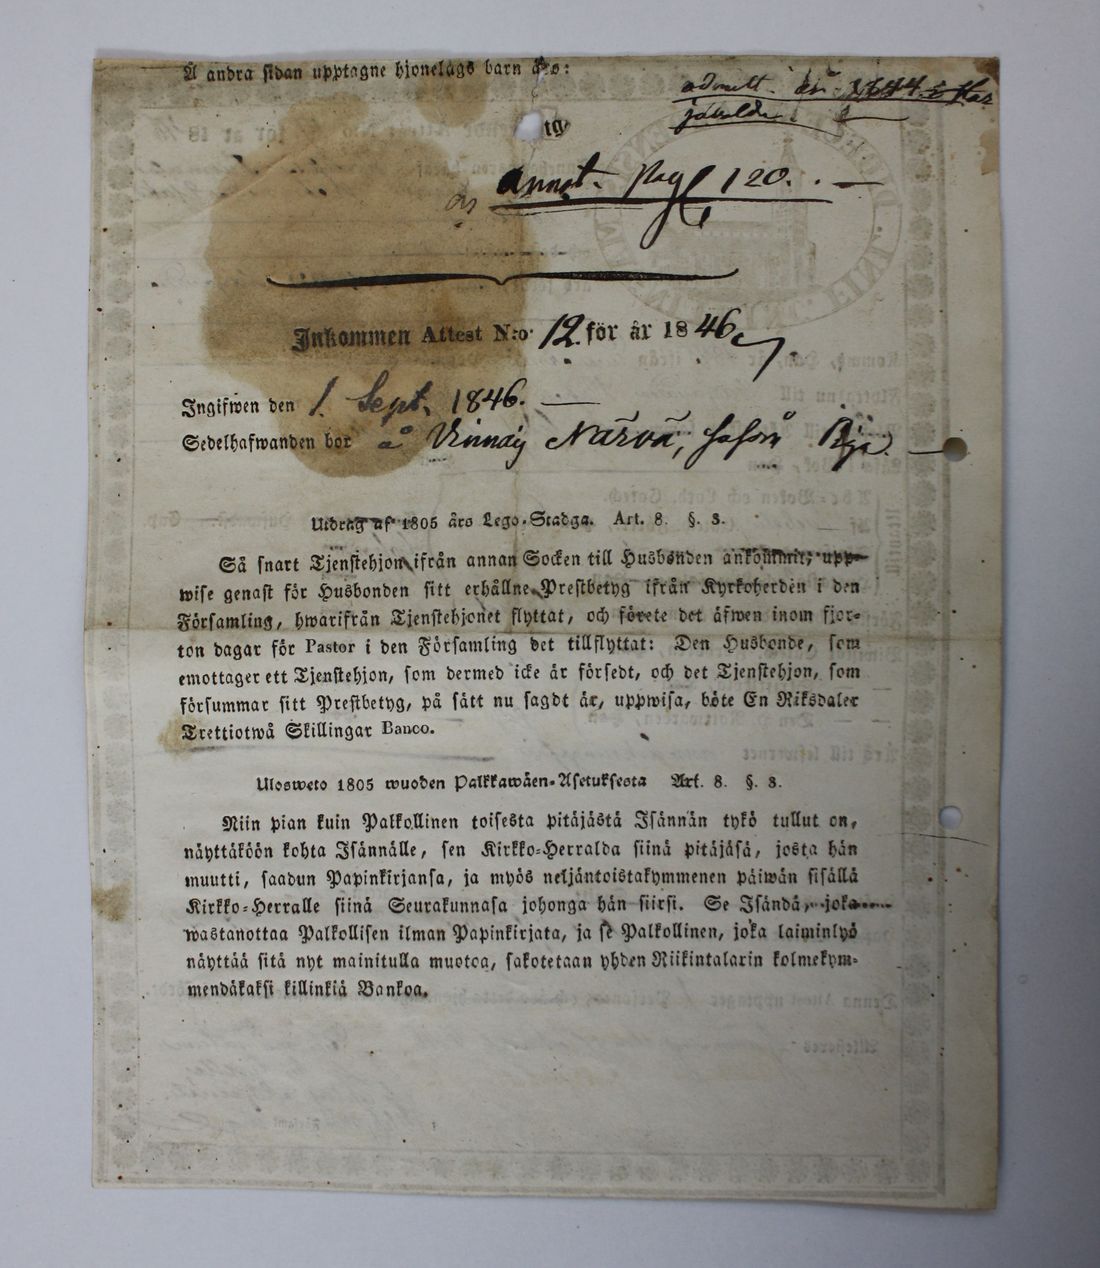 Å andra sidan upptagne hjonelags barn äro:
annot. Pag 120.
Inkommen Attest N:o 12. för år 1846
Ingifwen den 1. Sept. 1846.
Sedelhafwanden bor å
Utdrag af 1805 års Lego-Stadga. Art. 8. §. 3.
Så snart Tjenstehjon ifrån annan Socken till Husbonden ankommit, upp-
wise genast för Husbonden sitt erhållne Prestbetyg ifrån Kyrkoherden i den
Församling, hwarifrån Tjenstehjonet flyttat, och förete det äfwen inom fjor-
ton dagar för Pastor i den Församling det tillflyttat: Den Husbonde, som
emottager ett Tjenstehjon, som dermed icke är försedt, och det Tjenstehjon, som
försummar sitt Prestbetyg, på sätt nu sagdt är, uppwisa, böte En Riksdaler
Trettiotwå Skillingar Banco.
Ulosweto 1805 wuoden Palkkawäen-Asetuksesta Art. 8. §. 3.
Niin pian kuin Palkollinen toisesta pitäjästä Isännän tykö tullut on,
näyttäköön kohta Isännälle, sen Kirkko-Herralda siinä pitäjäsä, josta hän
muutti, saadun Papinkirjansa, ja myös neljäntoistakymmenen päiwän sisällä
Kirkko-Herralle siinä Seurakunnasa johonga hän siirsi. Se Isändä, joka
wastanottaa Palkollisen ilman Papinkirjata, ja se Palkollinen, joka laiminlyö
näyttää sitä nyt mainitulla muotoa, sakotetaan yhden Riikintalarin kolmekym-
mendäkaksi killinkiä Bankoa.